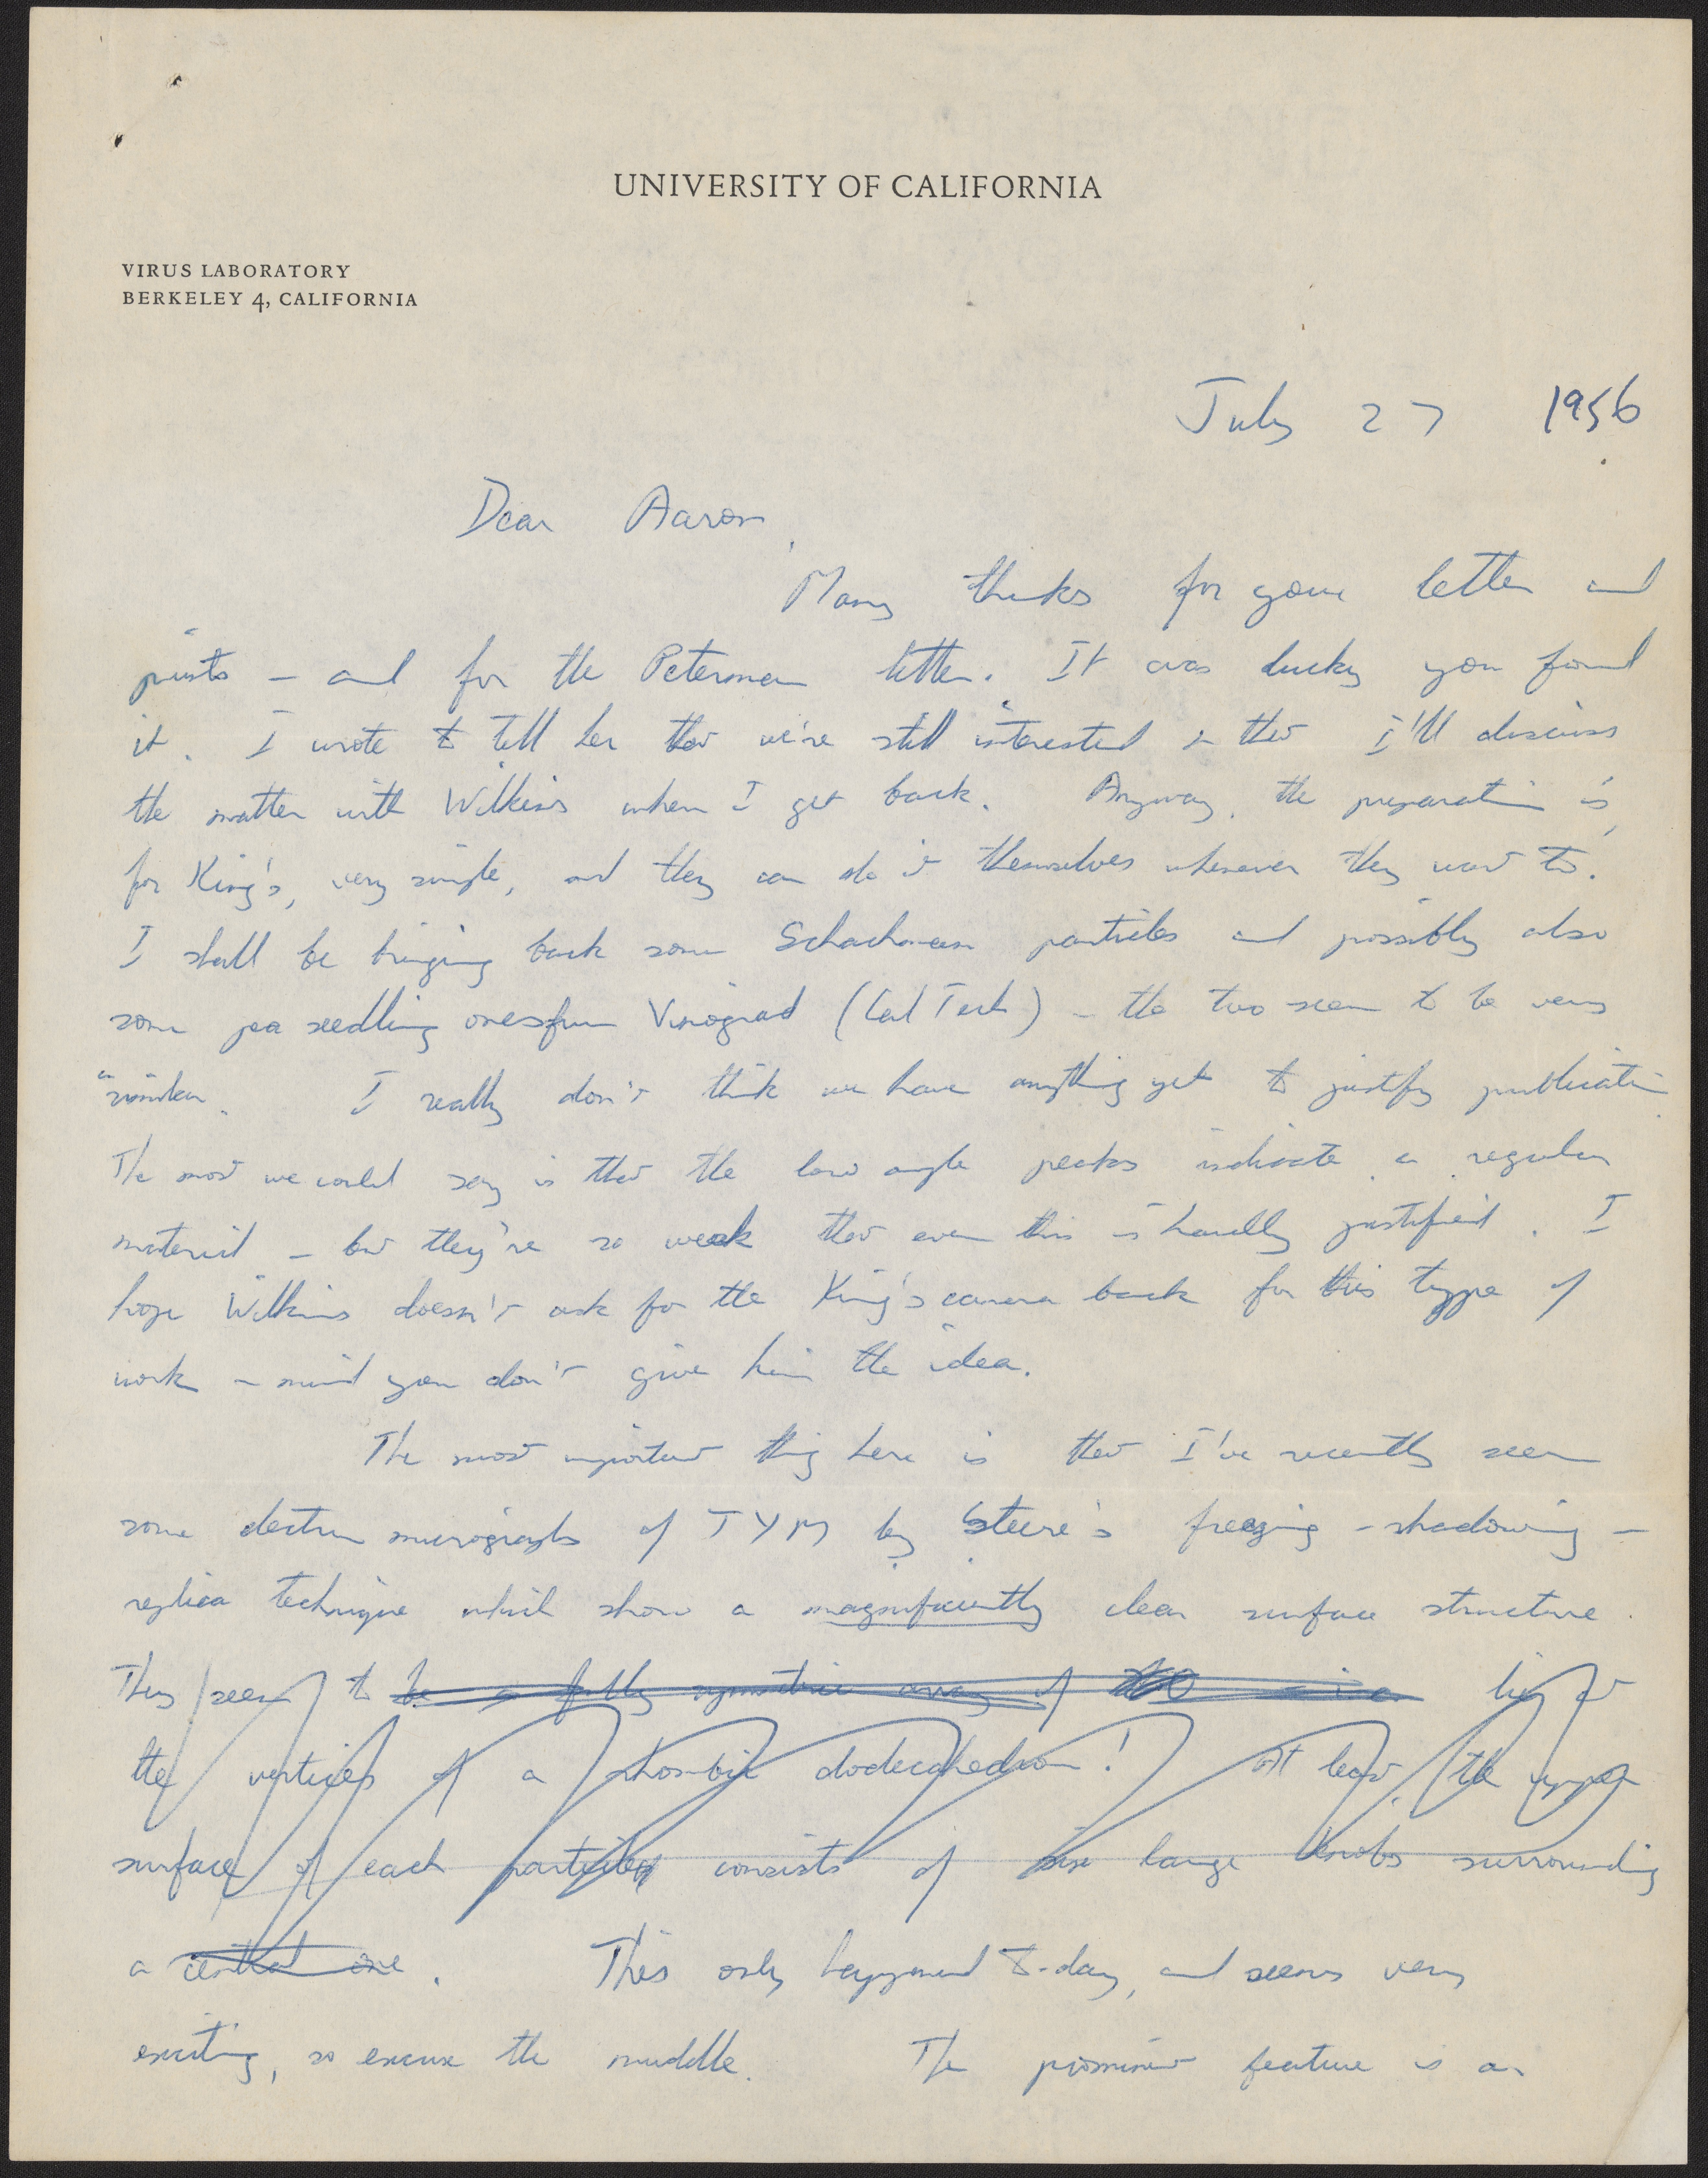 UNIVERSITY OF CALIFORNIA
VIRUS LABORATORY
BERKELEY 4, CALIFORNIA
July 27 1956
Dear Aaron,
Many thanks for your letter and
prints – and for the Peterman letter. It was lucky you found
it. I wrote to tell her that we're still interested & that I'll discuss
the matter with Wilkins when I get back. Anyway, the preparation is,
for King's, very simple, and they can do it themselves whenever they want to.
I shall be bringing back some Schachman particles and possibly also
some pea seedling ones from Vinograd (Cal Tech) – the two seem to be very
similar. I really don't think we have anything yet to justify publication.
The most we could say is that the low angle peaks indicate a regular
material – but they're so weak that even this is hardly justified. I
hope Wilkins doesn't ask for the King's camera back for this type of
work – mind you don't give him the idea.
The most important thing here is that I've recently seen
some electron micrographs of TYM by Steere's freezing-shadowing-
replica technique which show a magnificiently clear surface structure.
They seem to be a fully symmetric array of lie at
the vertices of a rhombic dodecahedron! At least, the upper
surface of each particle consists of six large knobs surrounding
a central one. This only happened to-day, and seems very
exciting, so excuse the muddle. The prominent feature is an